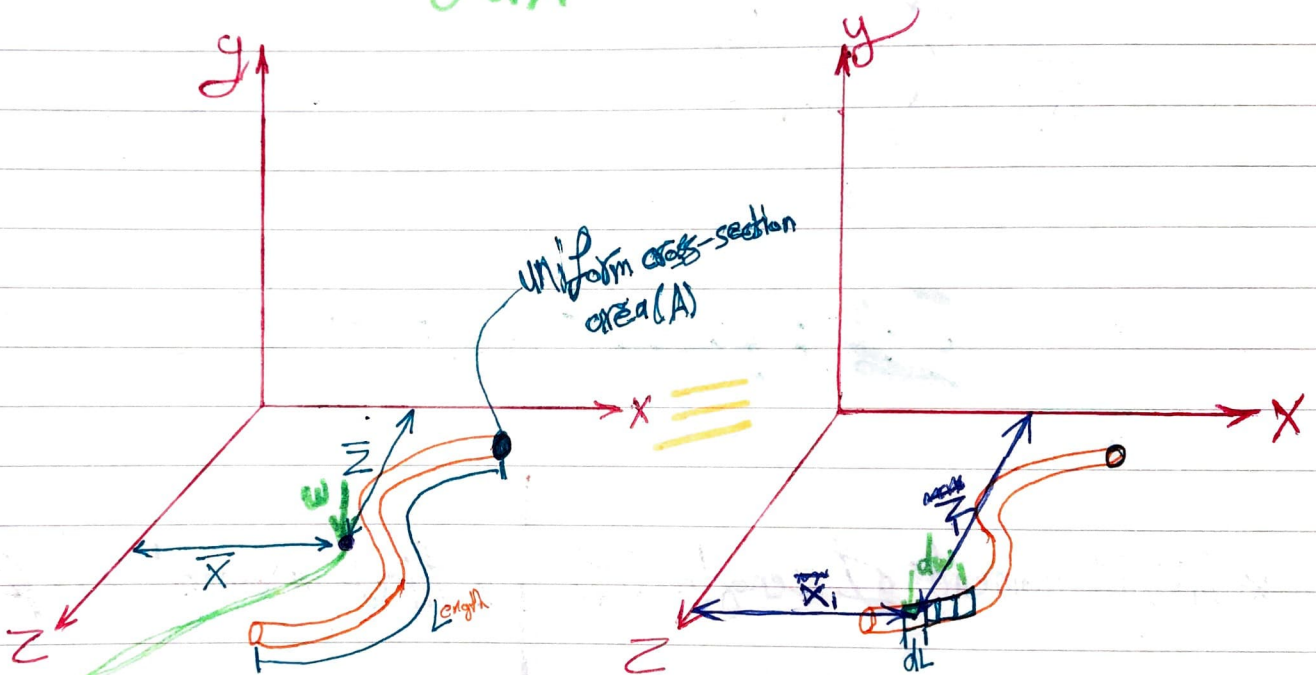 y
y
uniform cross-section
area (A)
X
X
Z̄
W
X̄
Length
dwi
X̄i
dL
Z
Z